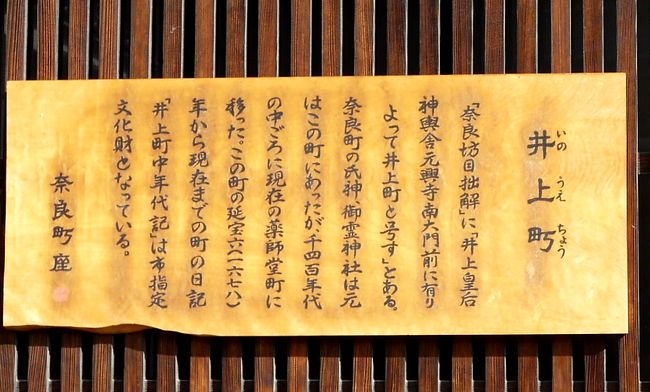 井上町
いの うえ ちょう
「奈良坊目拙解」に「井上皇后
神輿舎元興寺南大門前に有り
よって井上町と号す」とある。
奈良町の氏神、御霊神社は元
はこの町にあったが、千四百年代
の中ごろに現在の薬師堂町に
移った。この町の延宝六(一六七八)
年から現在までの町の日記
「井上町中年代記」は市指定
文化財となっている。
奈良町座